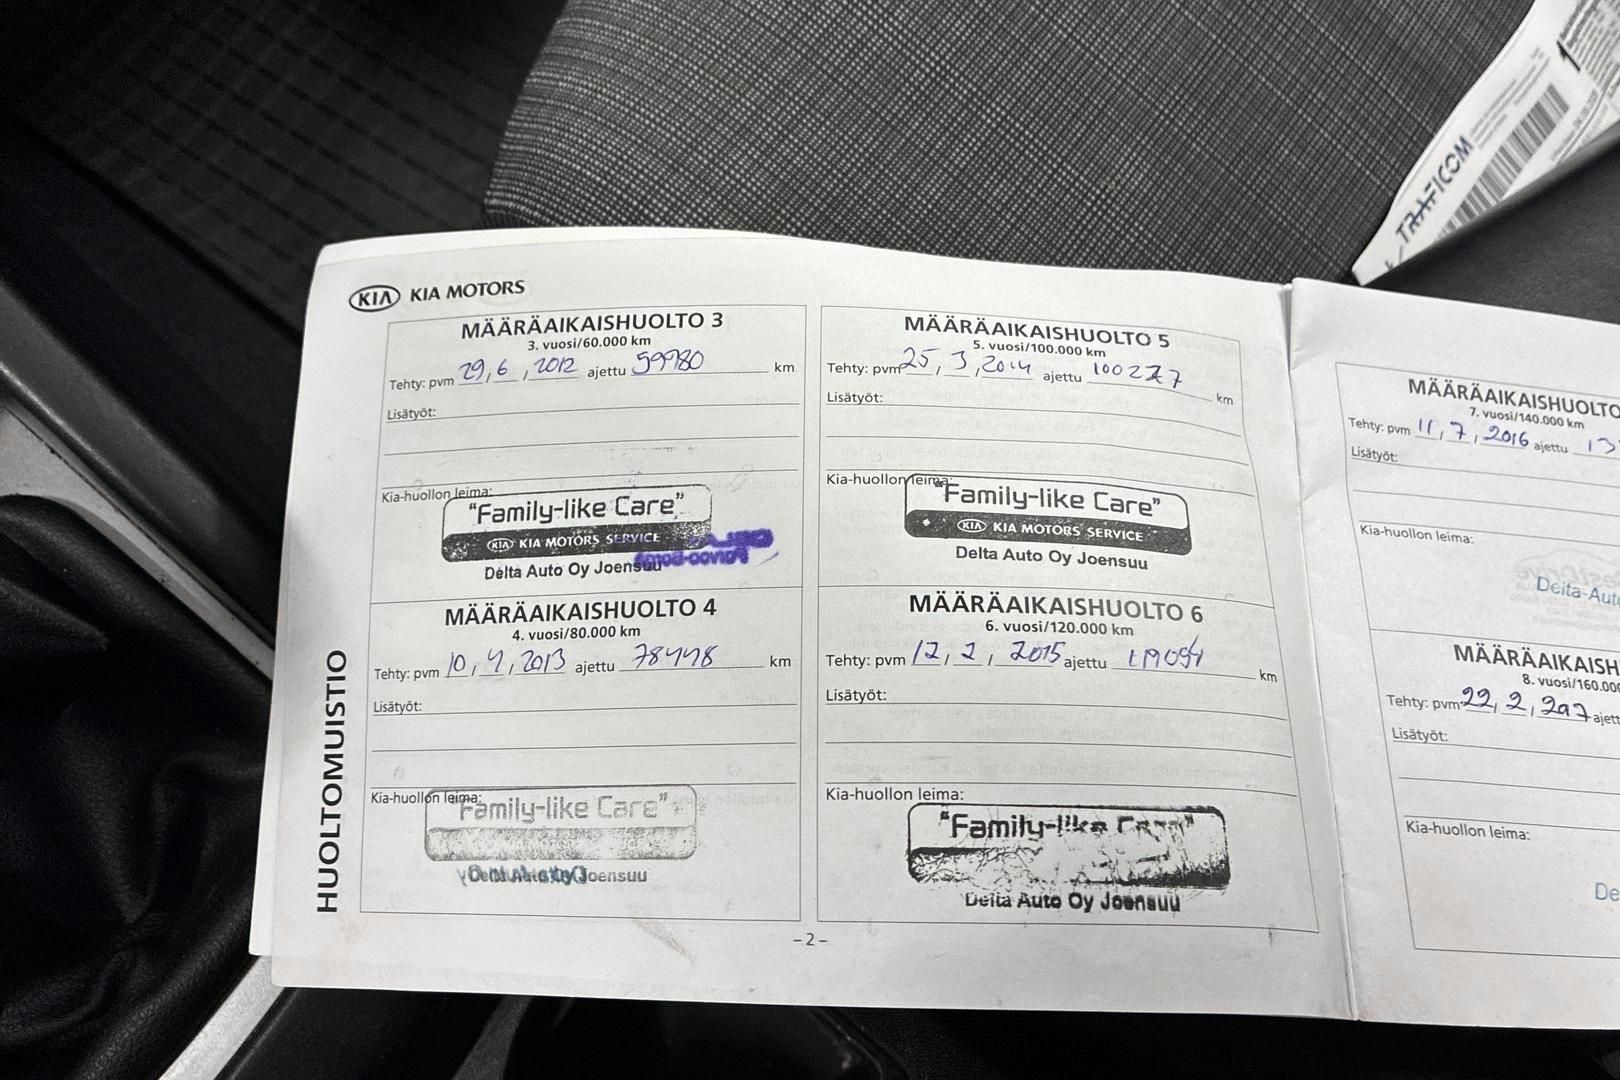 TRAFICOM
1
KIA KIA MOTORS
HUOLTOMUISTIO
MÄÄRÄAIKAISHUOLTO 3
3. vuosi/60.000 km
Tehty: pvm 29, 6, 2012 ajettu 59980 km
Lisätyöt:
Kia-huollon leima:
"Family-like Care"
KIA KIA MOTORS SERVICE
Delta Auto Oy Joensuu
MÄÄRÄAIKAISHUOLTO 4
4. vuosi/80.000 km
Tehty: pvm 10, 4, 2013 ajettu 78448 km
Lisätyöt:
Kia-huollon leima:
"Family-like Care"
Joensuu
MÄÄRÄAIKAISHUOLTO 5
5. vuosi/100.000 km
Tehty: pvm 25, 3, 2014 ajettu 100277 km
Lisätyöt:
Kia-huollon leima:
"Family-like Care"
KIA KIA MOTORS SERVICE
Delta Auto Oy Joensuu
MÄÄRÄAIKAISHUOLTO 6
6. vuosi/120.000 km
Tehty: pvm 12, 2, 2015 ajettu km
Lisätyöt:
Kia-huollon leima:
"Family-like Care"
Delta Auto Oy Joensuu
-2-
MÄÄRÄAIKAISHUOLTO
7. vuosi/140.000 km
Tehty: pvm 11, 7, 2016 ajettu 13
Lisätyöt:
Kia-huollon leima:
Delta-Aut
MÄÄRÄAIKAISH
8. vuosi/160.00
Tehty: pvm 22, 2, 2017 ajett
Lisätyöt:
Kia-huollon leima:
De